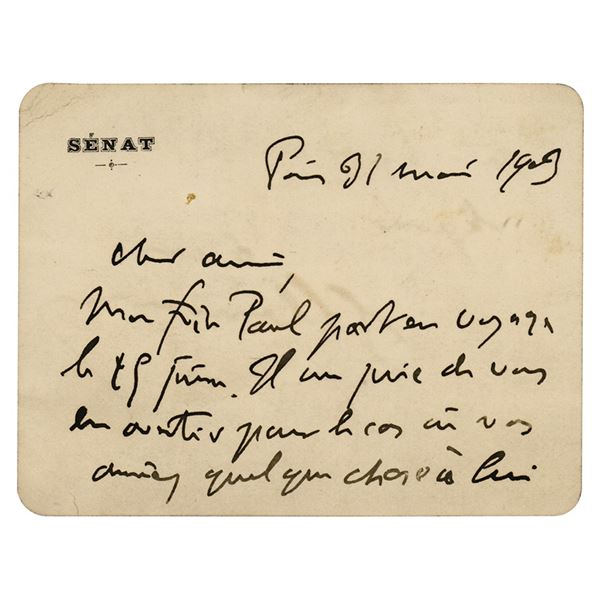 SÉNAT
Paris 31 mai 1903
cher ami,
Mon frère Paul part en voyage
le juin. Il me prie de vous
en avertir pour le cas où vous
auriez quelque chose à lui